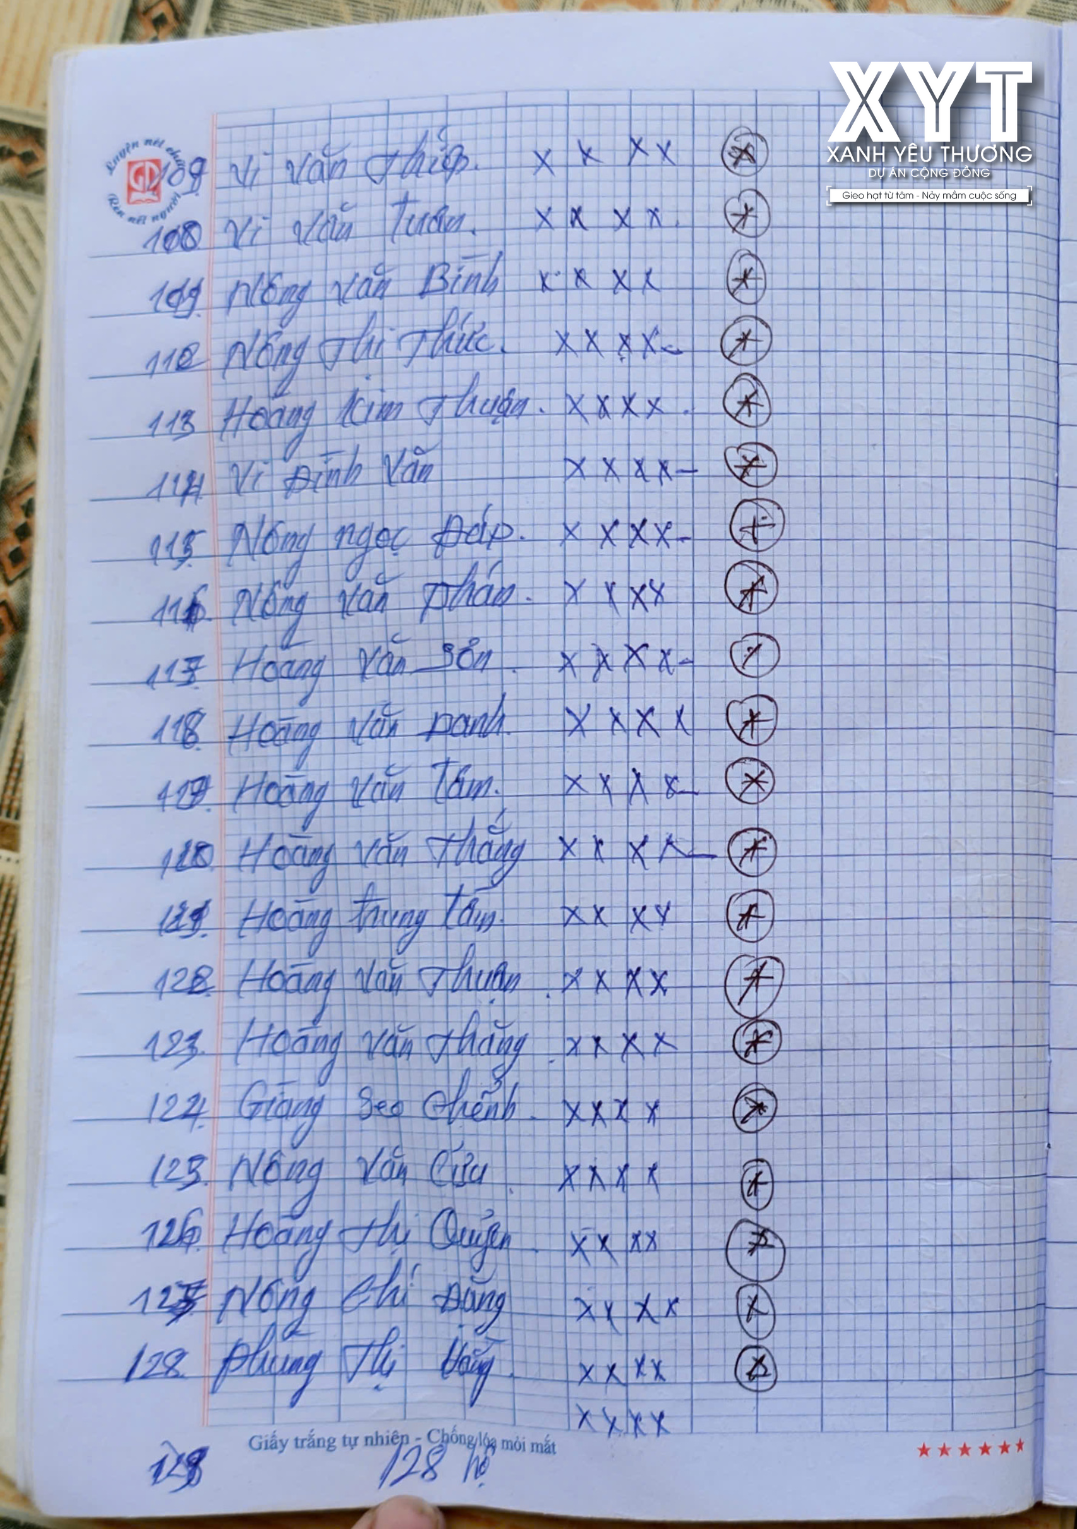 XYT
XANH YÊU THƯƠNG
DỰ ÁN CỘNG ĐỒNG
Gieo hạt từ tâm - Nảy mầm cuộc sống
Luyện nét chữ
GD
Rèn nết người
109 Vi Văn Thiệp. x x x x x
108 Vi Văn Tuân. x x x x. x
109. Nông Văn Bình x x x x x
112 Nông Thị Thức. x x x x x
113 Hoàng Kim Thuận. x x x x. x
114 Vi Đình Văn x x x x - x
115 Nông Ngọc Đáp. x x x x - x
116. Nông Văn Phán. x x x x x
117 Hoàng Văn Sơn. x x x x - x
118 Hoàng Văn Danh. x x x x x
119. Hoàng Văn Tâm. x x x x - x
120. Hoàng Văn Thắng x x x x - x
121. Hoàng Trung Tâm. x x x x x
122 Hoàng Văn Thuận. x x x x x
123. Hoàng Văn Thắng. x x x x x
124. Giàng Seo Chểnh. x x x x x
125. Nông Văn Cứu. x x x x x
126. Hoàng Thị Quyên. x x x x x
127 Nông Chí Đăng x x x x x
128 Phùng Thị Hằng. x x x x x
x x x x
Giấy trắng tự nhiên - Chống lóa mỏi mắt
128 hộ